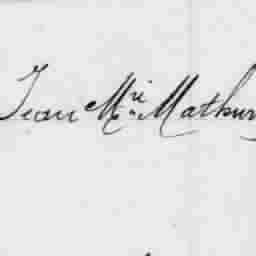 Jean Mrie Mathur